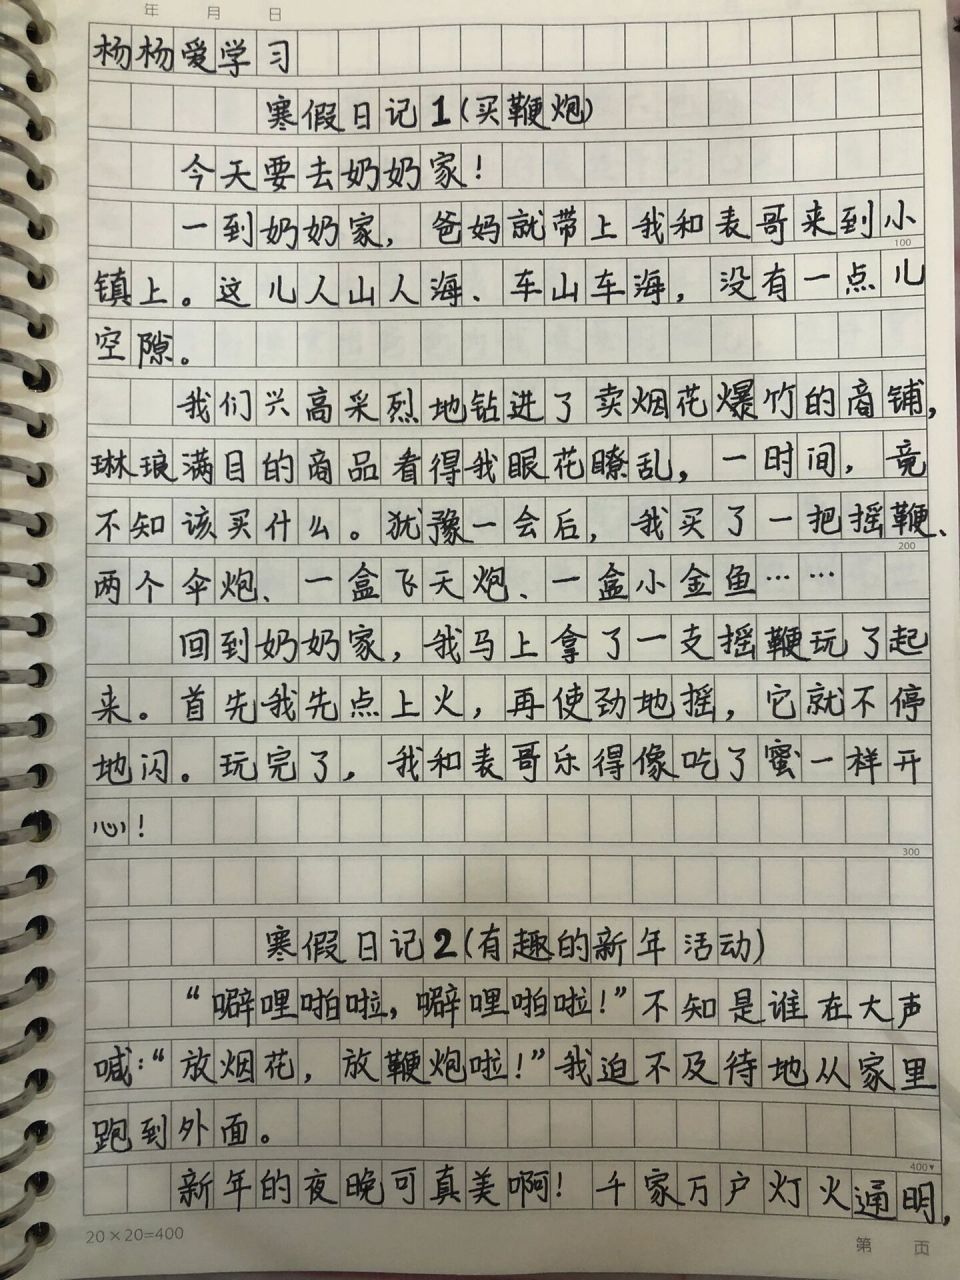 年 月 日
杨杨爱学习
寒假日记1(买鞭炮)
今天要去奶奶家!
一到奶奶家,爸妈就带上我和表哥来到小
100
镇上。这儿人山人海、车山车海,没有一点儿
空隙。
我们兴高采烈地钻进了卖烟花爆竹的商铺,
琳琅满目的商品看得我眼花瞭乱,一时间,竟
不知该买什么。犹豫一会后,我买了一把摇鞭、
200
两个伞炮、一盒飞天炮、一盒小金鱼……
回到奶奶家,我马上拿了一支摇鞭玩了起
来。首先我先点上火,再使劲地摇,它就不停
地闪。玩完了,我和表哥乐得像吃了蜜一样开
心!
300
寒假日记2(有趣的新年活动)
“噼哩啪啦,噼哩啪啦!”不知是谁在大声
喊:“放烟花,放鞭炮啦!”我迫不及待地从家里
跑到外面。
400▼
新年的夜晚可真美啊!千家万户灯火通明,
20×20=400
第 页